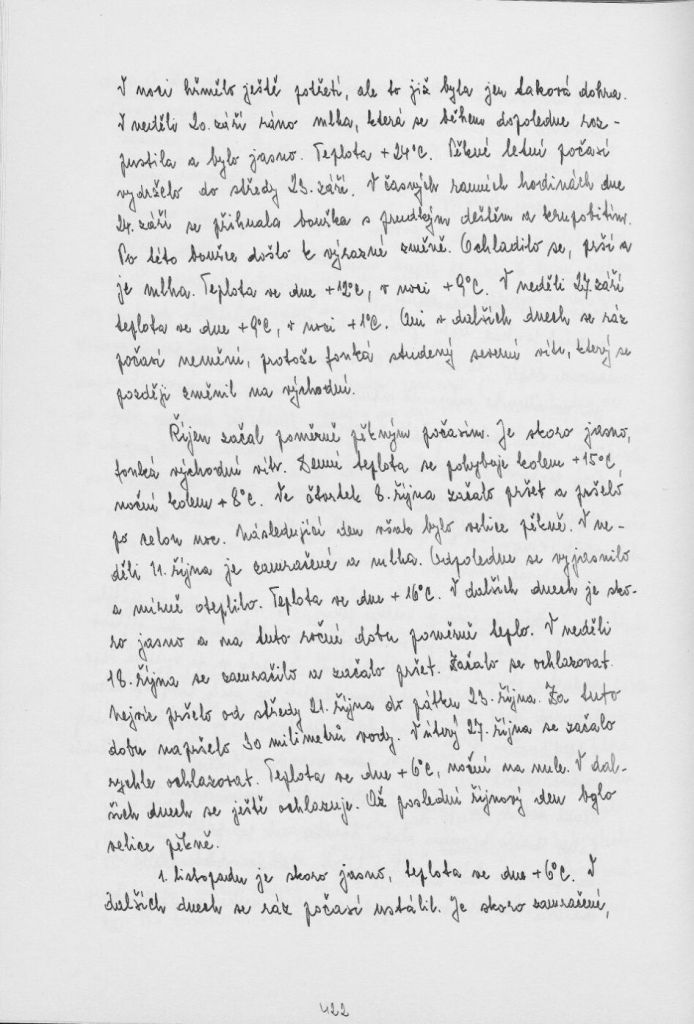 V noci hřmělo ještě potřetí, ale to již byla jen taková dohra.
V neděli 20. září ráno mlha, která se během dopoledne roz-
pustila a bylo jasno. Teplota +24°C. Pěkné letní počasí
vydrželo do středy 23. září. V časných ranních hodinách dne
24. září se přihnala bouřka s prudkým deštěm a krupobitím.
Po této bouřce došlo k výrazné změně. Ochladilo se, prší a
je mlha. Teplota ve dne +12°C, v noci +9°C. V neděli 27. září
teplota ve dne +9°C, v noci +1°C. Ani v dalších dnech se ráz
počasí nemění, protože fouká studený severní vítr, který se
později změnil na východní.
Říjen začal poměrně pěkným počasím. Je skoro jasno,
fouká východní vítr. Denní teplota se pohybuje kolem +15°C,
noční kolem +8°C. Ve čtvrtek 8. října začalo pršet a pršelo
po celou noc. Následující den však bylo velice pěkně. V ne-
děli 11. října je zamračené a mlha. Odpoledne se vyjasnilo
a mírně oteplilo. Teplota ve dne +16°C. V dalších dnech je sko-
ro jasno a na tuto roční dobu poměrně teplo. V neděli
18. října se zamračilo a začalo pršet. Začalo se ochlazovat.
Nejvíc pršelo od středy 21. října do pátku 23. října. Za tuto
dobu napršelo 30 milimetrů vody. V úterý 27. října se začalo
rychle ochlazovat. Teplota ve dne +6°C, noční na nule. V dal-
ších dnech se ještě ochlazuje. Až poslední říjnový den bylo
velice pěkně.
1. listopadu je skoro jasno, teplota ve dne +6°C. V
dalších dnech se ráz počasí ustálil. Je skoro zamračené,
422